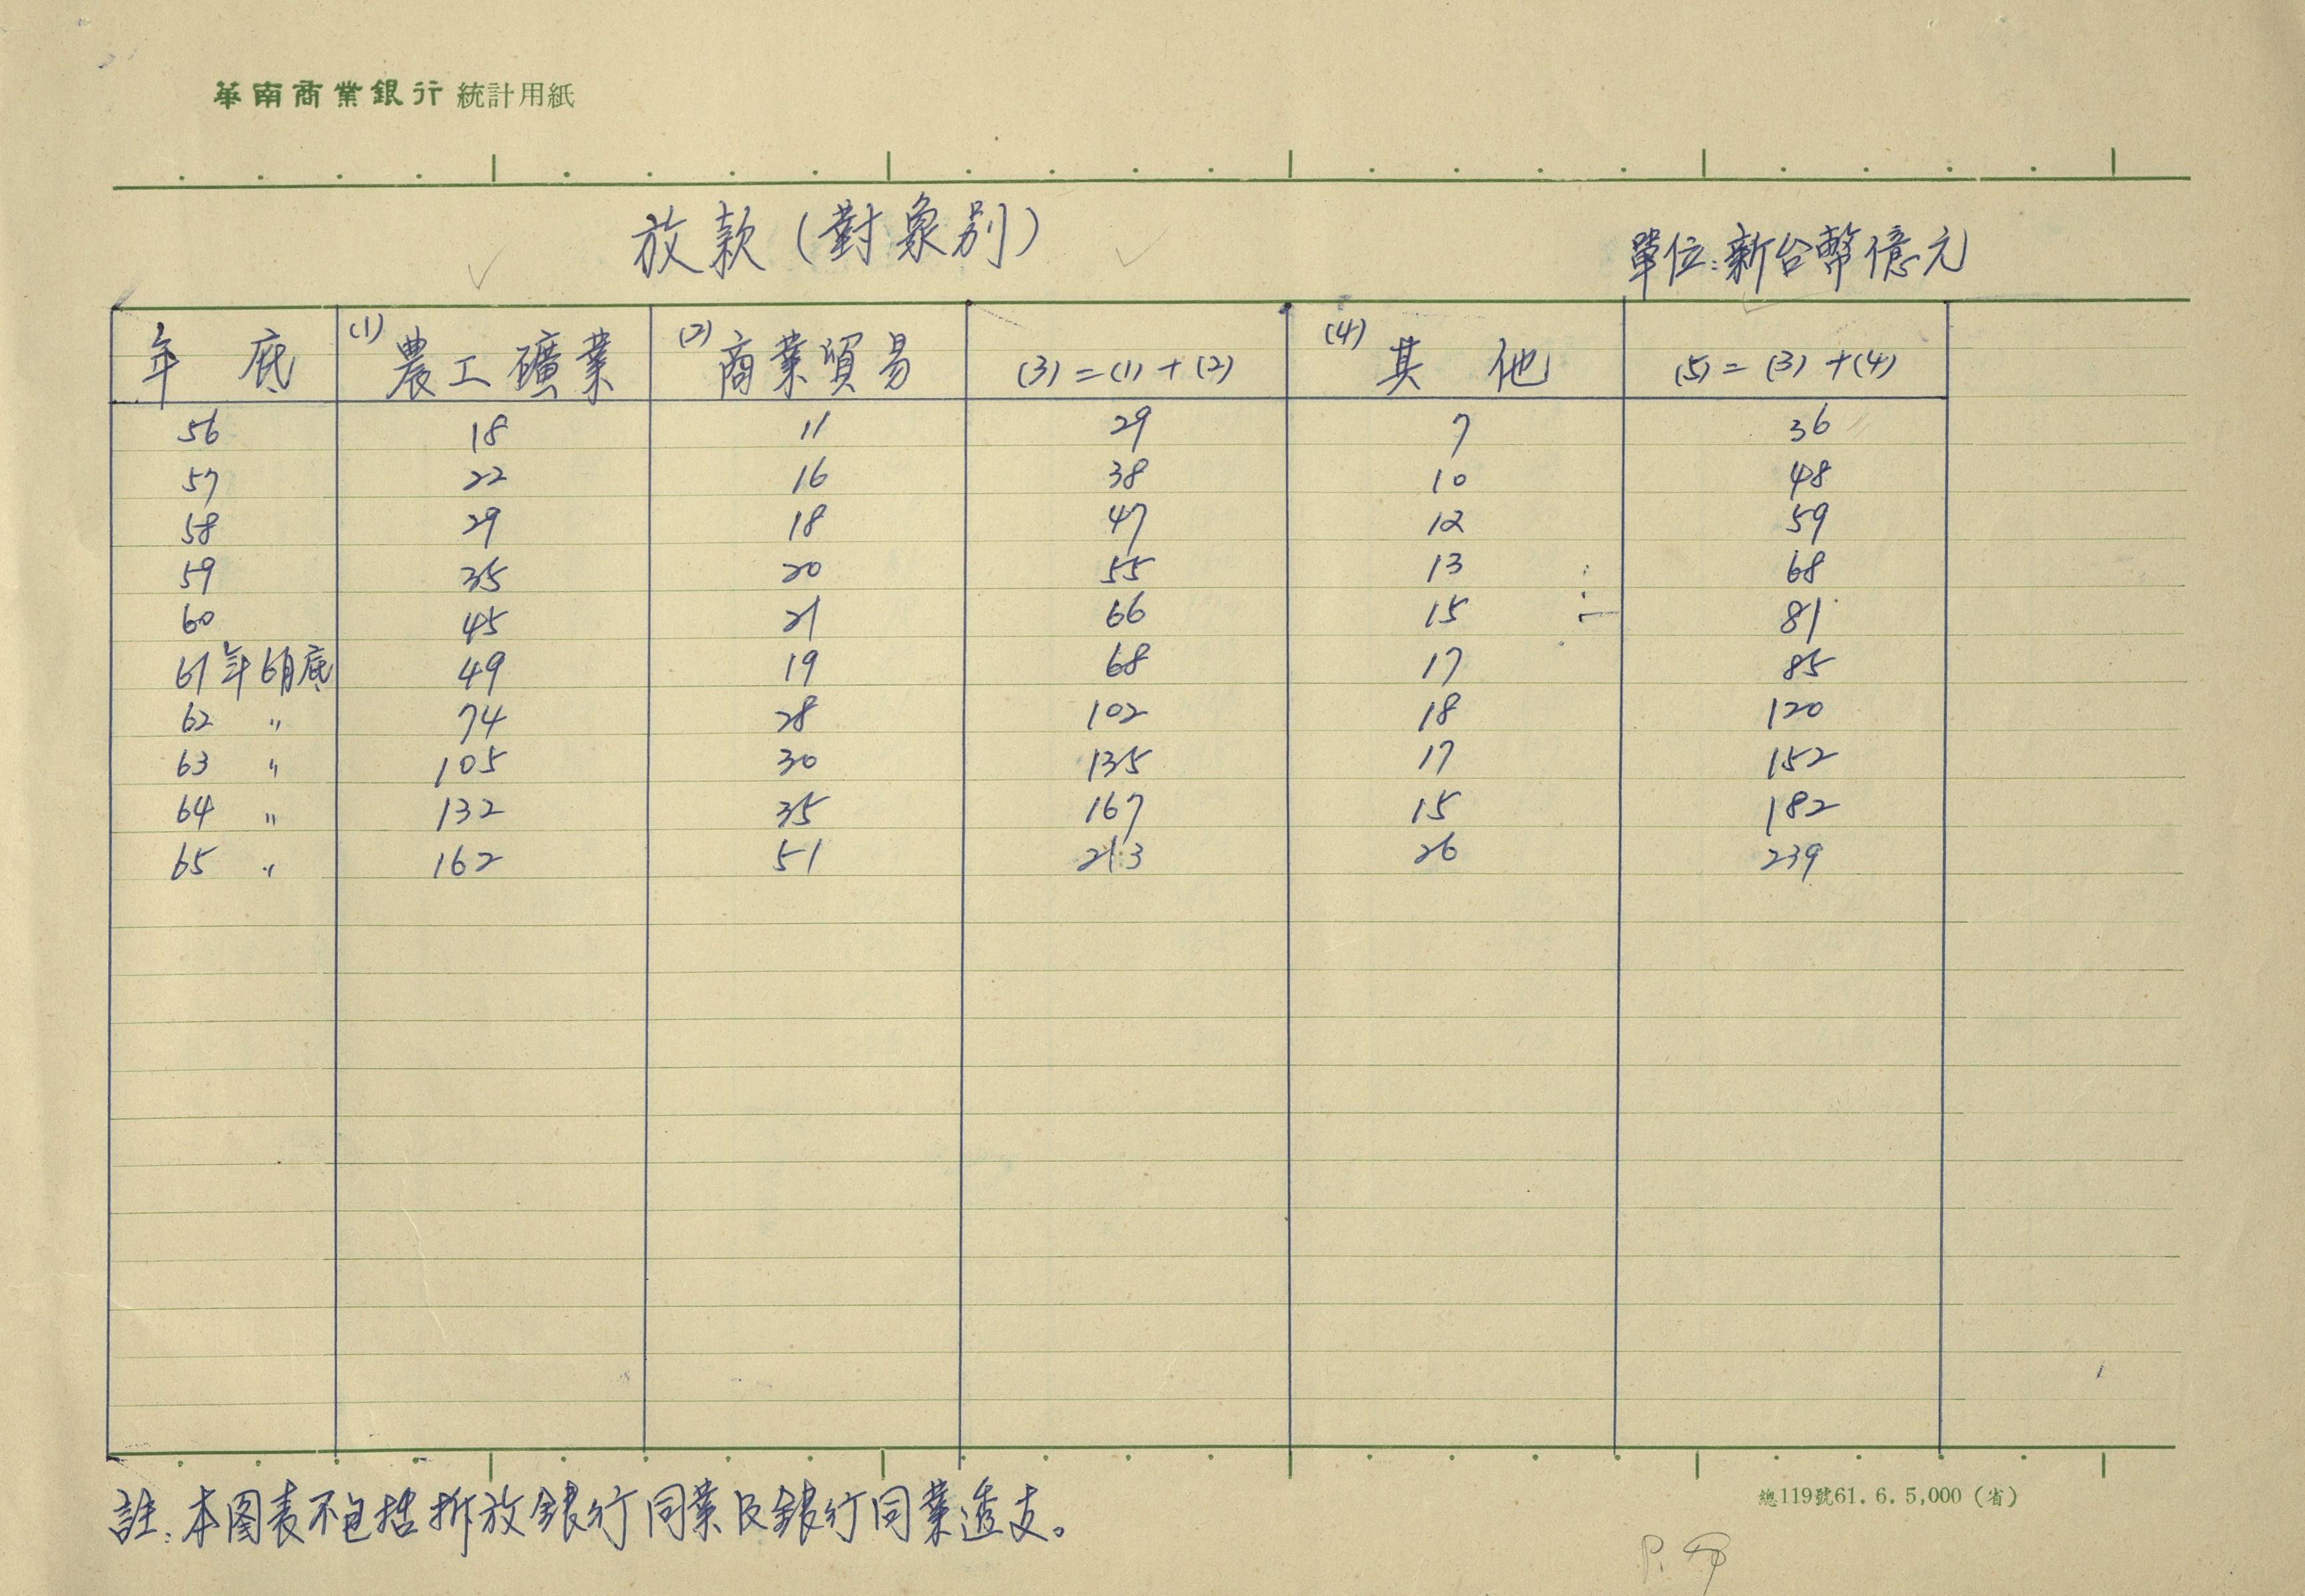 華南商業銀行 統計用紙
放款(對象別)
單位:新台幣億元
年 底 (1) 農工礦業 (2) 商業貿易 (3)=(1)+(2) (4) 其 他 (5)=(3)+(4)
56 18 11 29 7 36
57 22 16 38 10 48
58 29 18 47 12 59
59 35 20 55 13 68
60 45 21 66 15 81
61年6月底 49 19 68 17 85
62 〃 74 28 102 18 120
63 〃 105 30 135 17 152
64 〃 132 35 167 15 182
65 〃 162 51 213 26 239
總119號61. 6. 5,000 (省)
註:本图表不包括拆放銀行同業及銀行同業透支。